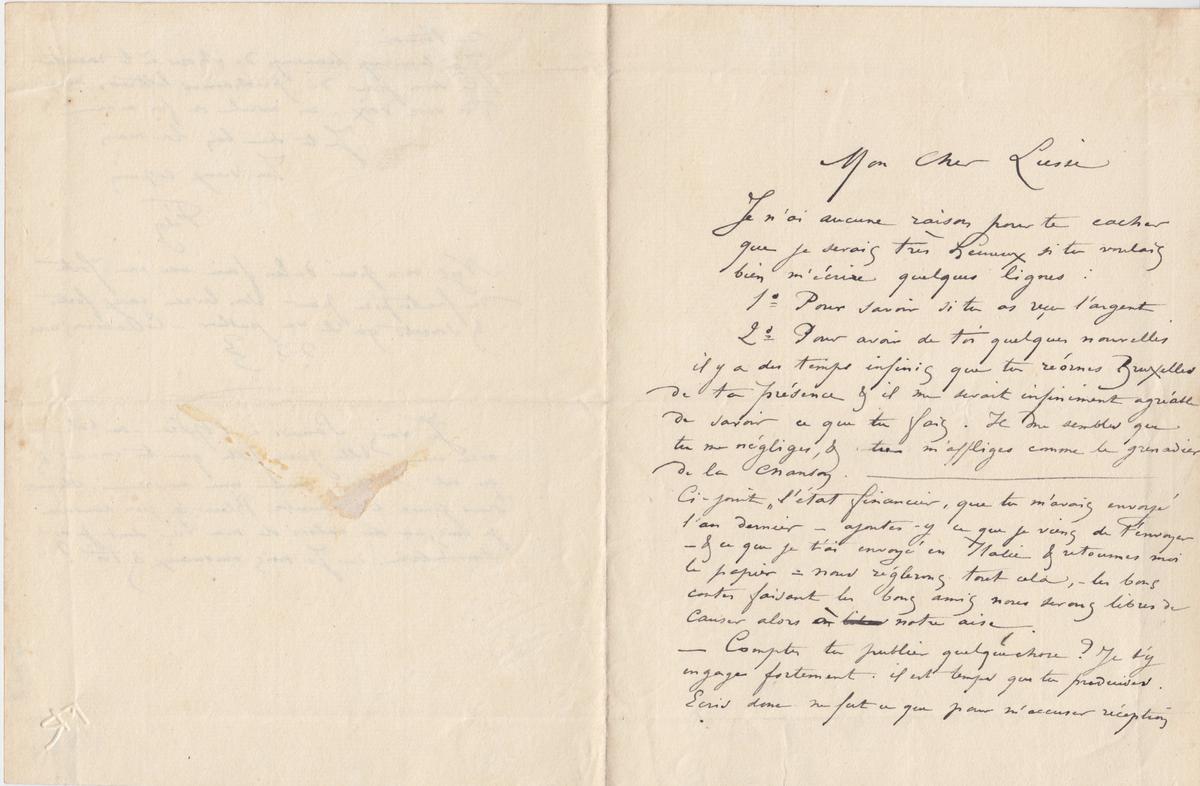 Mon Cher Liesse
Je n'ai aucune raison pour te cacher
que je serais très heureux si tu voulais
bien m'écrire quelques lignes :
1º Pour savoir si tu as reçu l'argent
2º Pour avoir de toi quelques nouvelles
il y a des temps infinis que tu réornes Bruxelles
de ta présence & il me serait infiniment agréable
de savoir ce que tu fais. Il me semble que
tu me négliges, & m'affliges comme le grenadier
de la chanson.
Ci-joint, l'état financier, que tu m'avais envoyé
l'an dernier – ajoutes-y ce que je viens de t'envoyer
– & ce que je t'ai envoyé en Italie & retournes moi
le papier = nous réglerons tout cela, – les bons
contes faisant les bons amis nous serons libres de
causer alors à notre aise.
— Comptes tu publier quelque chose ? Je t'y
engage fortement : il est temps que tu produises.
Ecris donc ne fut ce que pour m'accuser réception